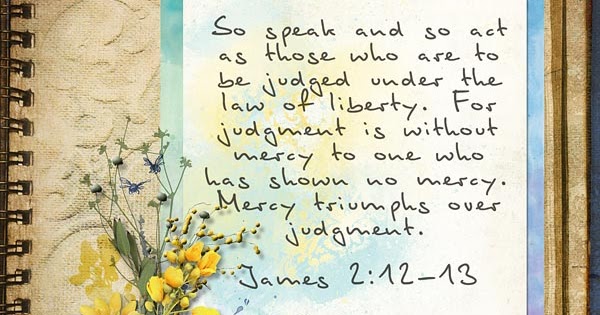 So speak and so act
as those who are to
be judged under the
law of liberty. For
judgment is without
mercy to one who
has shown no mercy.
Mercy triumphs over
judgment.
James 2:12–13